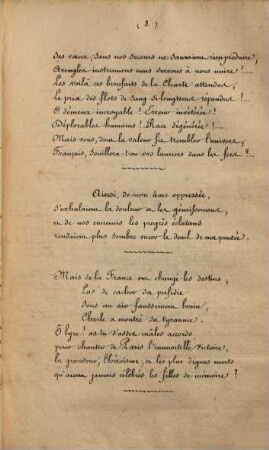 ( 3. )
Ses vœux, sans nos secours ne sauraient rien produire,
Aveugles instrumens nous servons à nous nuire !....
Les voilà ces bienfaits de la Charte attendus,
Le prix des flots de sang si longtems répandus !...
O démence incroyable ! Erreur invétérée !
Déplorables humains ! Race dégénérée !....
Mais vous, dont la valeur fit trembler l'univers,
Français, souillera-t-on vos lauriers dans les fers ?...
Ainsi, de mon âme oppressée,
S'exhalaient la douleur et les gémissemens,
et de nos ennemis les progrès éclatans
rendaient plus sombre encor le deuil de ma pensée.
Mais de la France on change les destins;
Las de cacher sa perfidie
sous un air faussement benin,
Charle a montré sa tyrannie.
O lyre ! as-tu d'assez mâles accords
pour chanter de Paris l'immortelle victoire,
la grandeur, l'héroïsme, et les plus dignes morts
qu'aient jamais célébrés les filles de mémoire ?